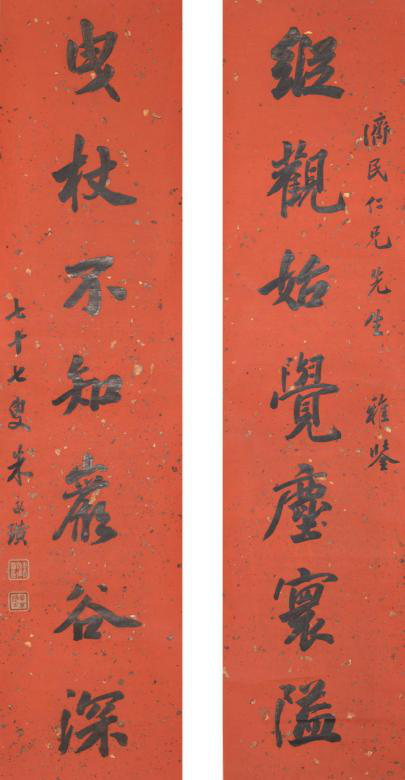 濟民仁兄先生 雅鑒
縱觀始覺塵寰隘
曳杖不知巖谷深
七十七叟朱永璜